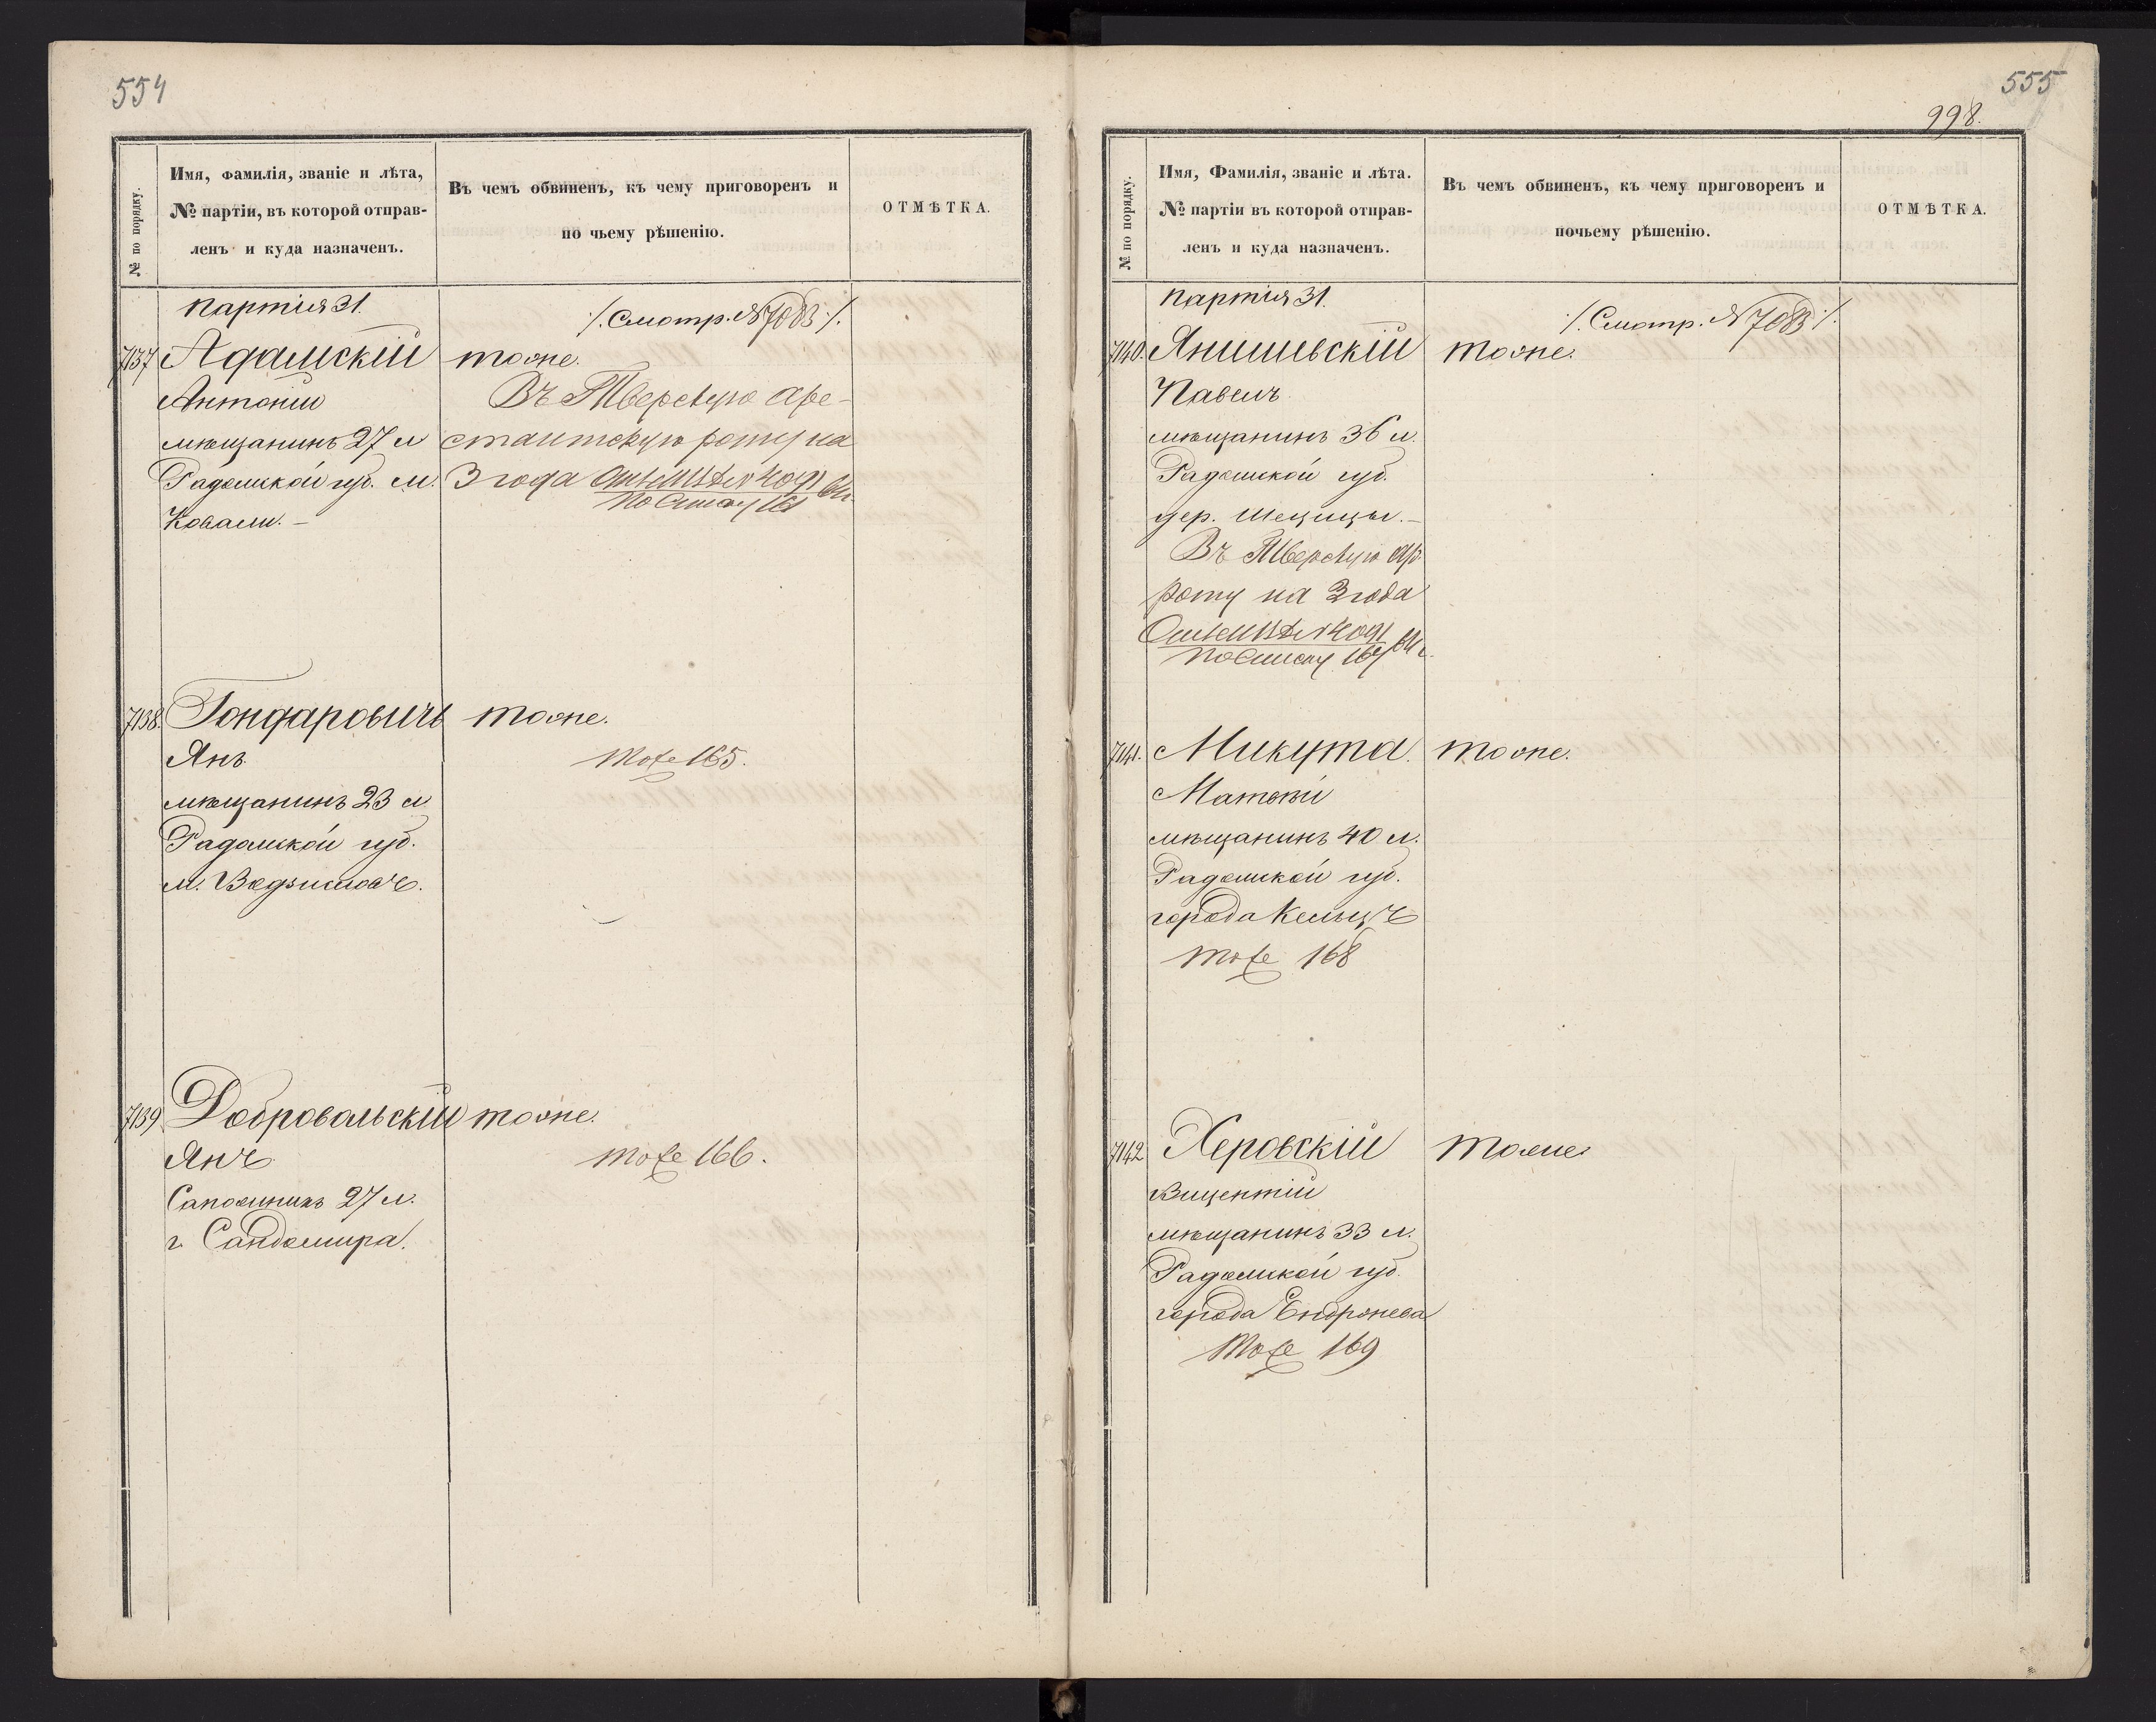 554
№ по порядку.
Имя, фамилія, званіе и лѣта,
№ партіи, въ которой отправ-
ленъ и куда назначенъ.
Въ чемъ обвиненъ, къ чему приговоренъ и
по чьему рѣшенію.
ОТМѢТКА.
партія 31.
/. Смотр. № 7083 /.
7137 Адамскій тоже.
Антоній
Въ Тверскую аре-
мѣщанинъ 27 л
стантскую роту на
Радомской губ. м.
3 года
Ковали. —
по списку
7138. Гондаровичъ тоже.
Янъ
тоже 165.
мѣщанинъ 23 л
Радомской губ.
м.
7139 Добровольскій тоже.
Янъ
тоже 166.
Сапожникъ 27 л.
г. Сандомира.
555
998.
№ по порядку.
Имя, Фамилія, званіе и лѣта.
№ партіи въ которой отправ-
ленъ и куда назначенъ.
Въ чемъ обвиненъ, къ чему приговоренъ и
почьему рѣшенію.
ОТМѢТКА.
партія 31.
/. Смотр. № 7083 /.
7140. Янишевскій тоже.
Павелъ
мѣщанинъ 36 л.
Радомской губ.
дер. Шецицы. —
Въ Тверскую ар
роту на 3 года
по списку 167
7141. Микута. тоже.
Матвѣй
мѣщанинъ 40 л.
Радомской губ.
города Кельцъ
тоже 168
7142 Херовскій тоже
Вицентій
мѣщанинъ 33 л.
Радомской губ.
города Ендржева
тоже 169